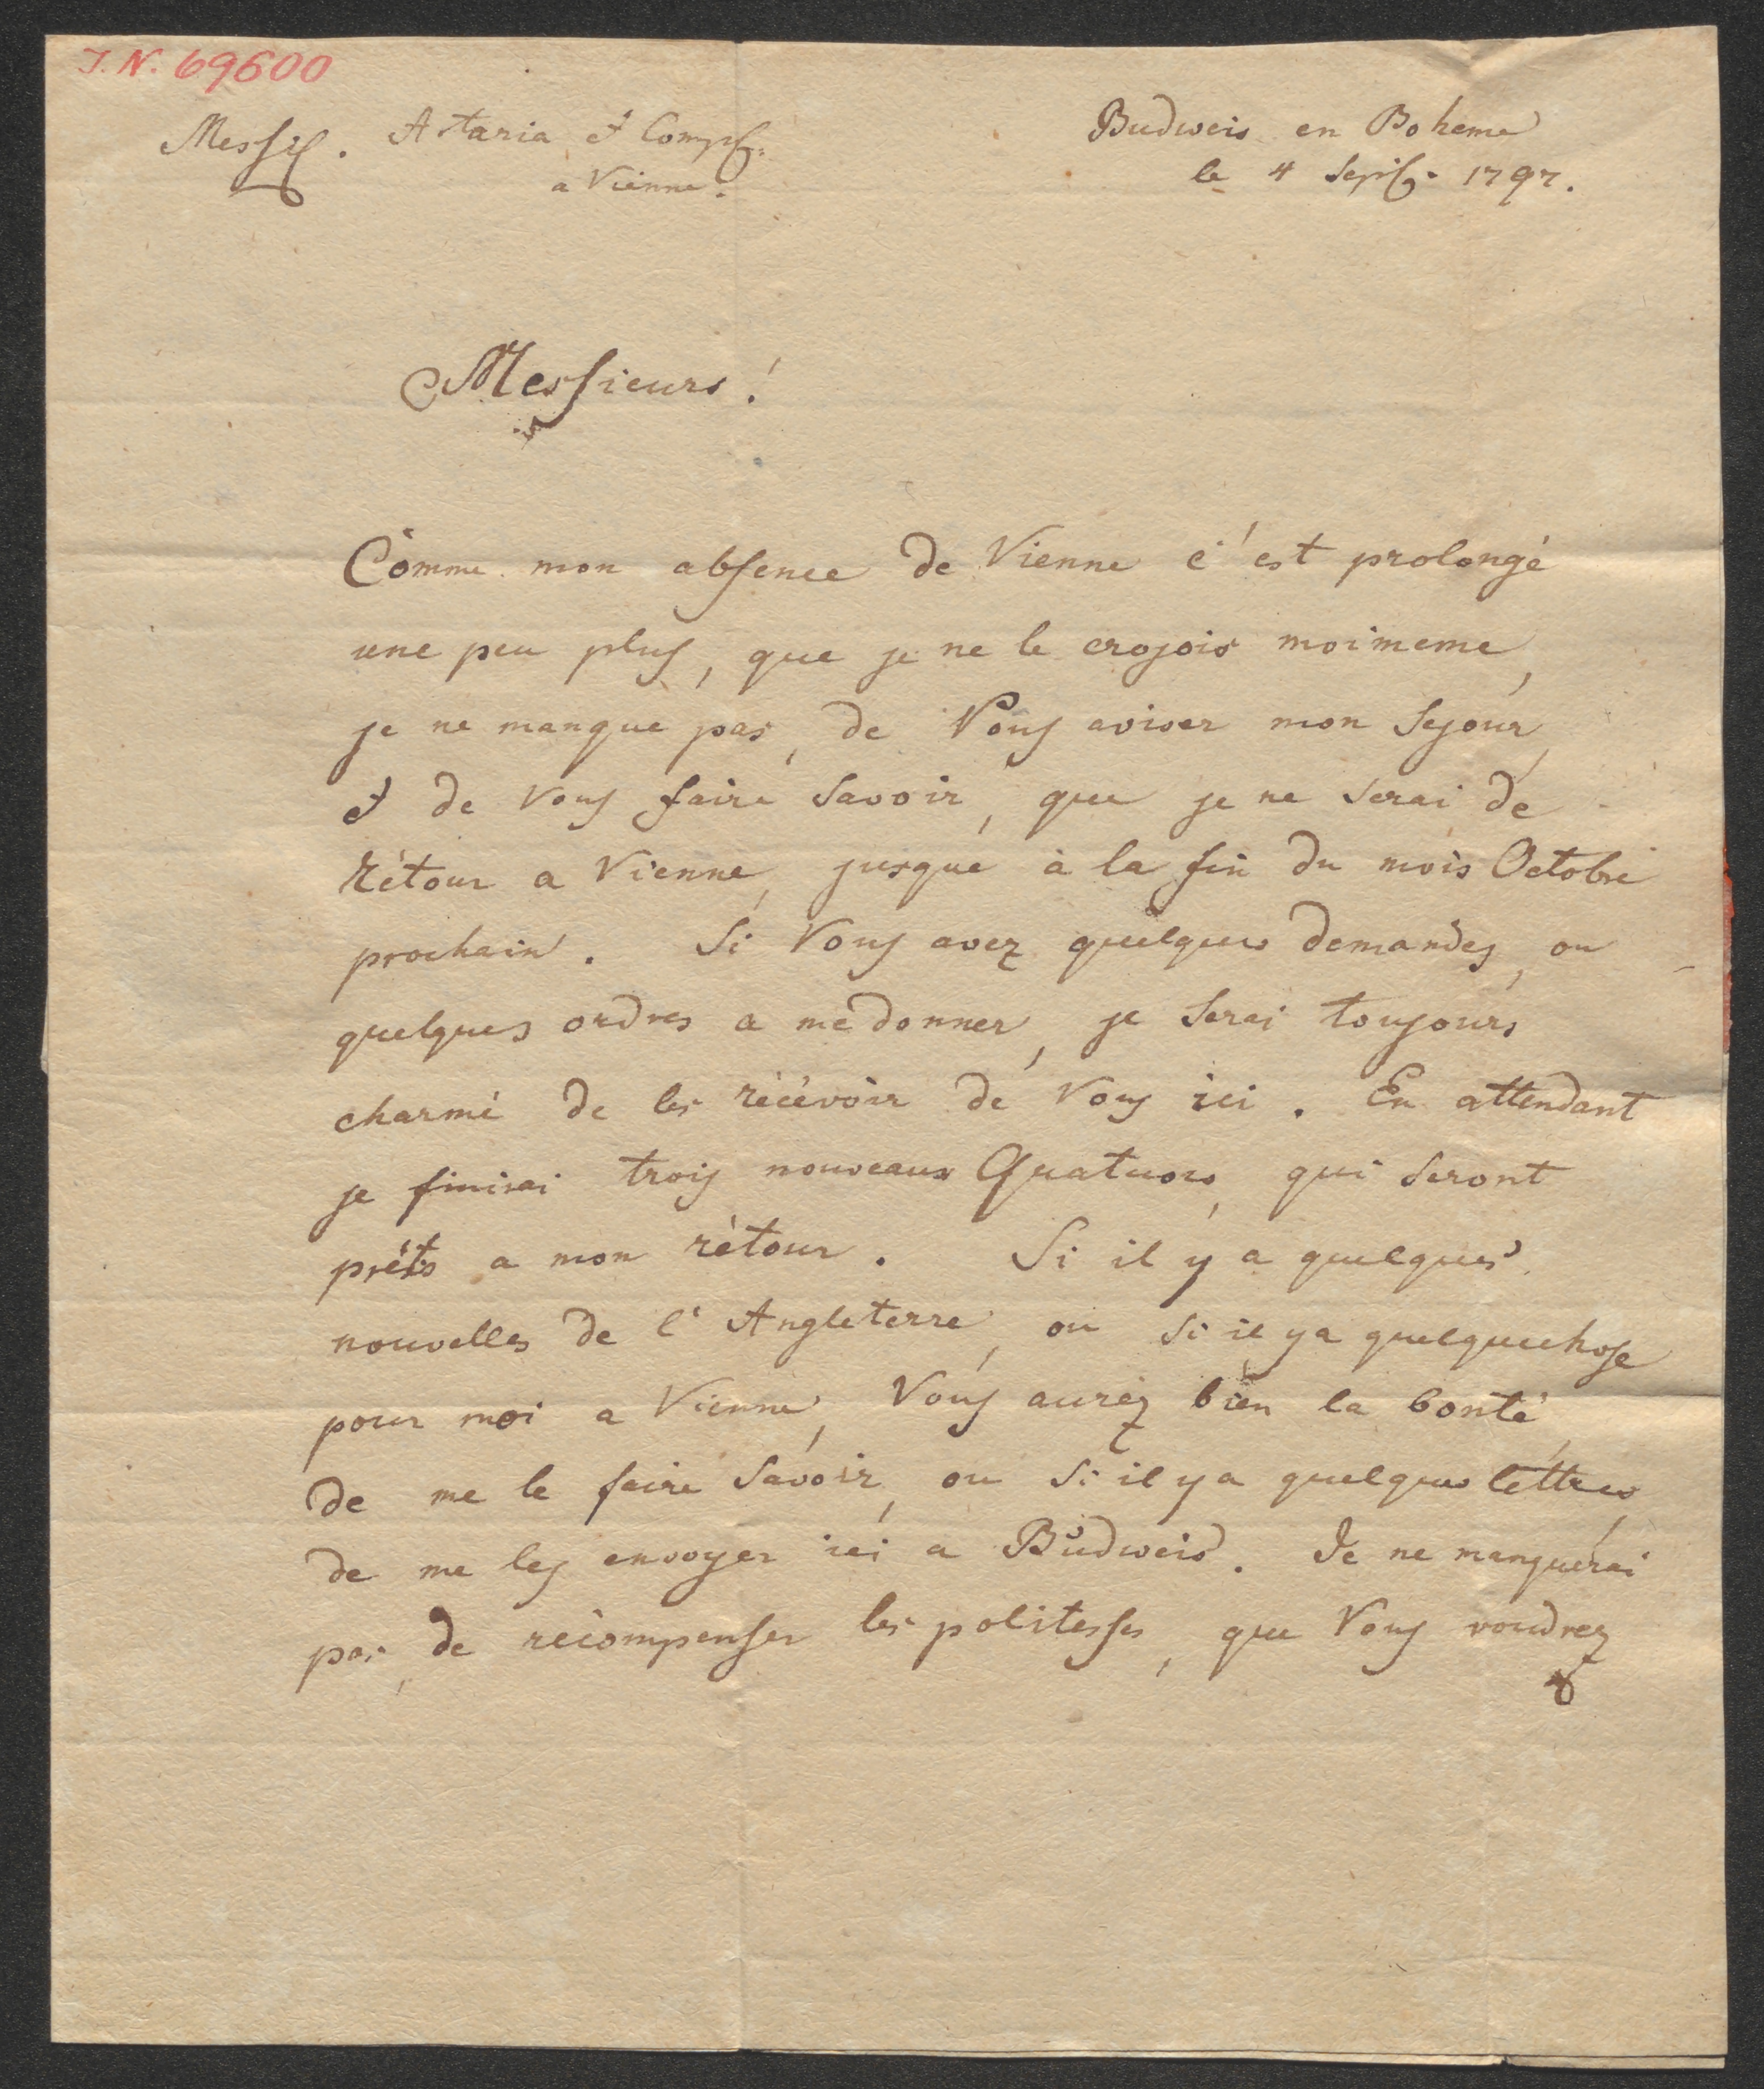 I. N. 69600
Messrs. Artaria et Comp.
a Vienne.
Budweis en Boheme
le 4 Sept. 1797.
Messieurs!
Comme mon absence de Vienne c'est prolongé
une peu plus, que je ne le crojois moimeme,
je ne manque pas, de Vous aviser mon Sejour,
et de Vous faire Savoir, que je ne Serai de
rétour a Vienne, jusque à la fin du mois Octobre
prochain. Si Vous avez quelques demandes, ou
quelques ordres a me donner, je Serai toujours
charmé de les récévoir de Vous ici. En attendant
je finirai trois nouveaux Quatuors, qui Seront
préts a mon rétour. Si il y a quelques
nouvelles de l'Angleterre, ou Si il y a quelquechose
pour moi a Vienne, Vous auréz bien la bonté,
de me le faire Savoir, ou Si il y a quelques léttres,
de me les envoyer ici a Budweis. Je ne manquérai
pas, de récompenser les politesses, que Vous voudrez